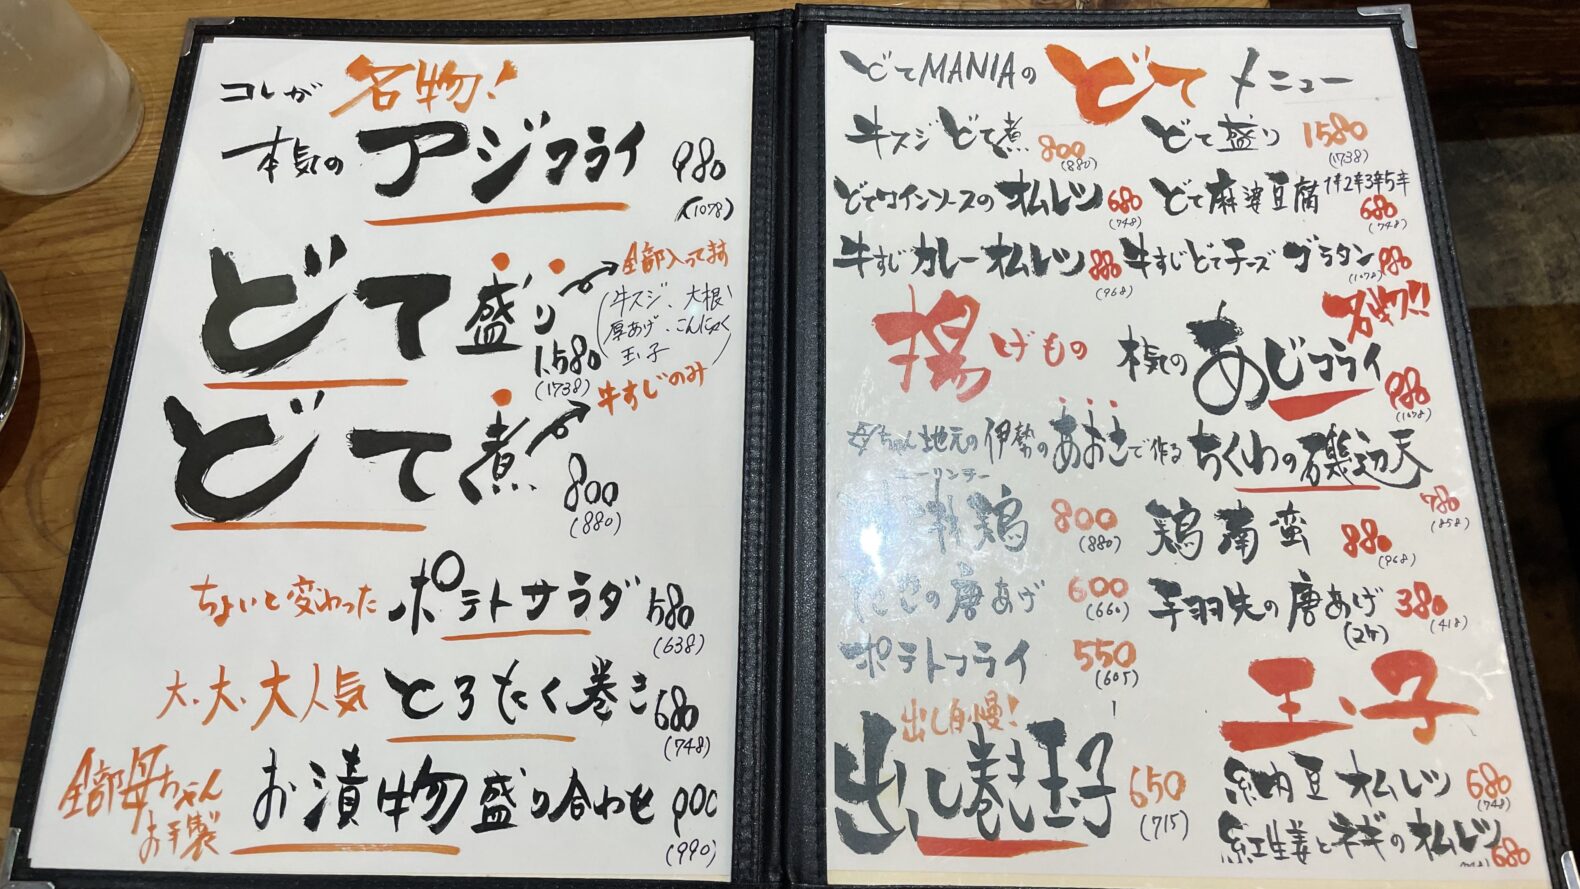 コレが 名物!
本気の アジフライ 980
(1078)
どて盛り 1,580
(1738)
全部入ってます
(牛スジ、大根、
厚あげ、こんにゃく
玉子)
どて煮 800
(880)
牛すじのみ
ちょいと変わった ポテトサラダ 580
(638)
大、大、大人気 とろたく巻き 680
(748)
全部母ちゃん
お手製
お漬物盛り合わせ 900
(990)
どてMANIAの どて メニュー
牛スジどて煮 800
(880)
どて盛り 1580
(1738)
どてワインソースのオムレツ 680
(748)
どて麻婆豆腐 1辛2辛3辛5辛
680
(748)
牛すじカレーオムレツ 880
(968)
牛すじどてチーズグラタン 980
(1078)
揚げもの
名物!!
本気の あじフライ 980
(1078)
母ちゃん地元の伊勢のあおさで作る ちくわの磯辺天
780
(858)
鶏 800
(880)
鶏南蛮 880
(968)
の唐あげ 600
(660)
手羽先の唐あげ 380
(2ヶ) (418)
ポテトフライ 550
(605)
出し自慢!
出し巻き玉子 650
(715)
玉子
納豆オムレツ 680
(748)
紅生姜とネギのオムレツ
680